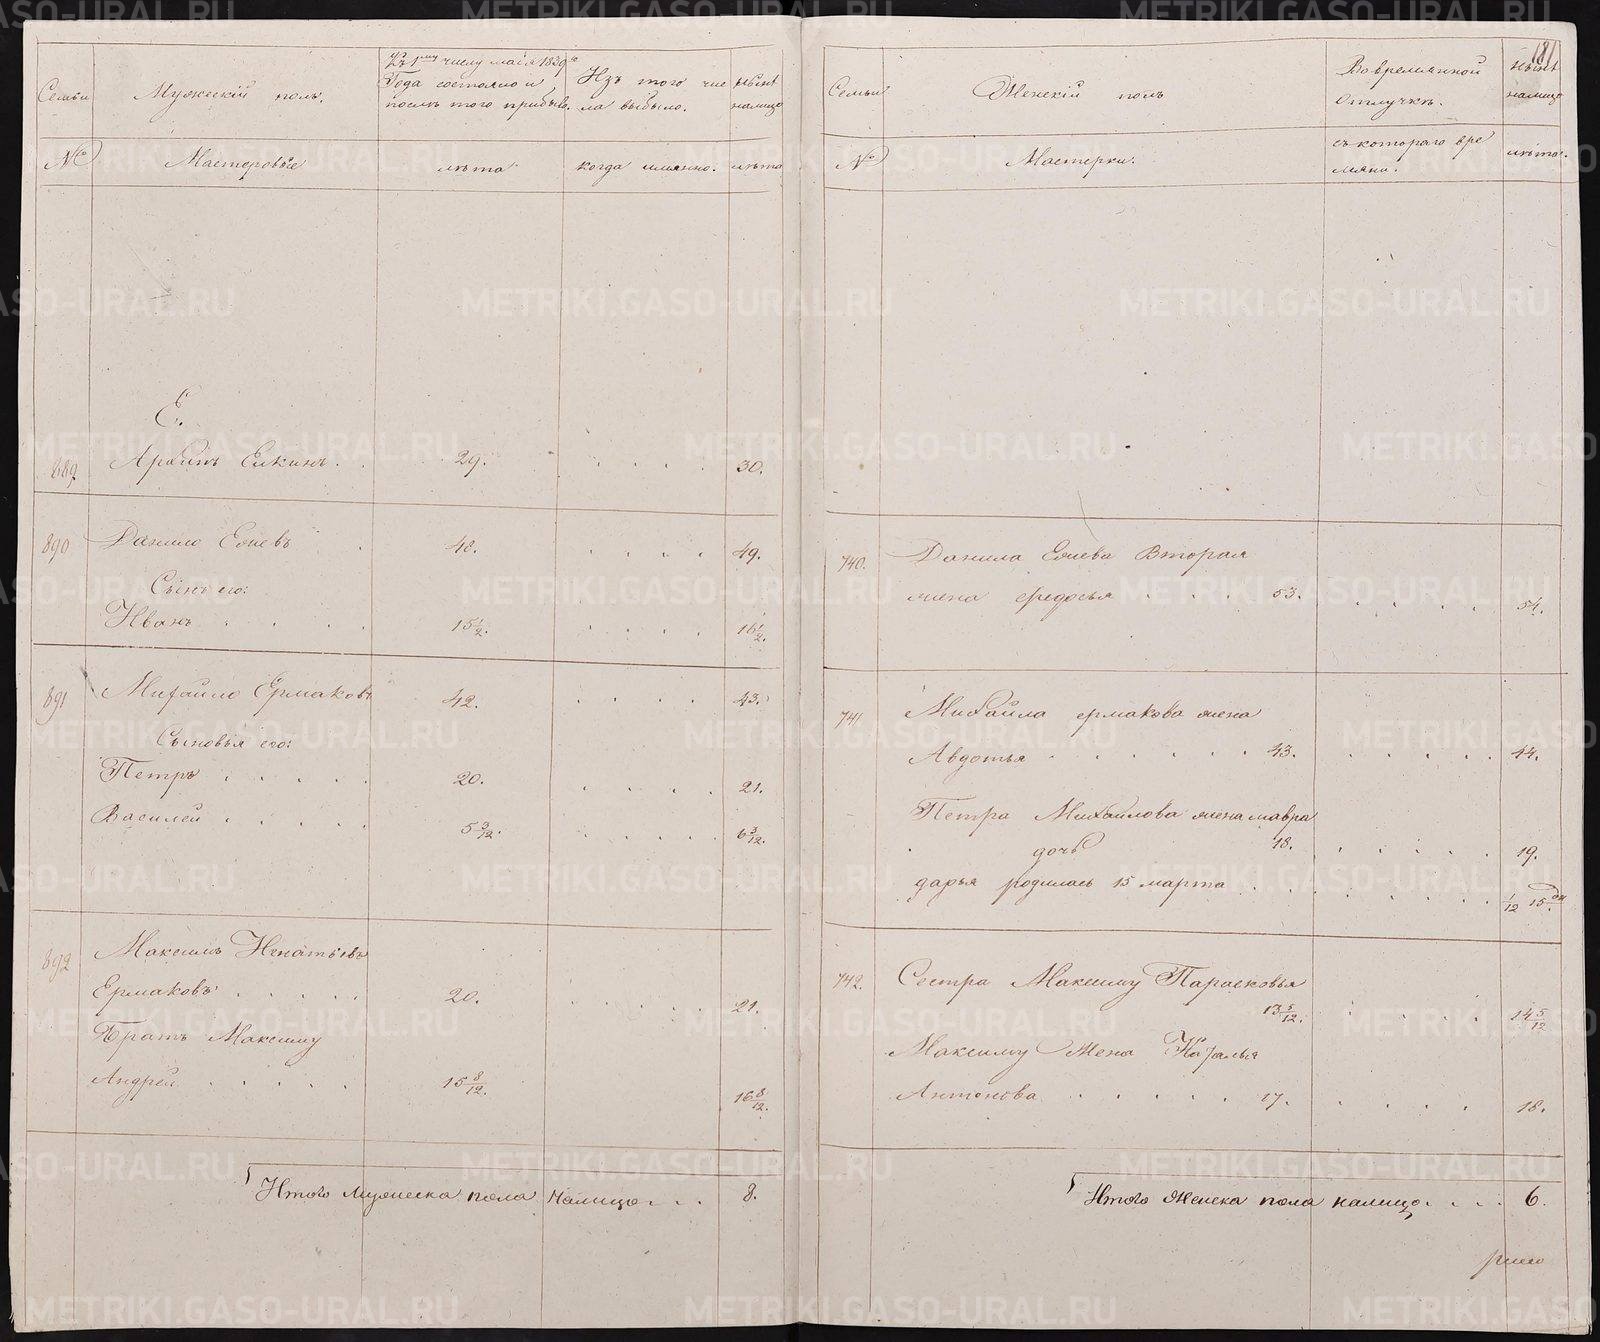 Семьи
Мужескій полъ.
Къ 1му числу маія 1839го
Года состояло и
послѣ того прибыло.
Изъ того чис
ла выбыло.
нынѣ
налицо
№
Мастеровые
лѣта
когда имянно.
лѣта
Е.
889
Елкинъ.
29.
30.
890
Данило
48.
49.
Сынъ его:
Иванъ
15 1/2.
16 1/2.
891
Михайло Ермаковъ
42.
43.
Сыновья его:
Петръ
20.
21.
Василей
5 3/12.
6 3/12.
892
Максимъ
Ермаковъ
20.
21.
Братъ Максиму
Андрей
15 8/12.
16 8/12.
Итого мужеска пола налицо
8.
181
Семьи
Женскій полъ
Во времянной
отлучкѣ.
нынѣ
налицо
№
Мастерки.
съ котораго вре
мяни.
лѣта.
740.
Данила Вторая
жена Ѳедосья 53.
54.
741
Михайла Ермакова жена
Авдотья 43.
44.
Петра Михайлова жена Мавра
18.
19.
дочь
дарья родилась 15 марта
1/12 15 дн
742.
Сестра Максиму Парасковья
13 5/12.
14 5/12
Максиму Жена Наталья
Антонова 17.
18.
Итого Женска пола налицо
6.
METRIKI.GASO-URAL.RU